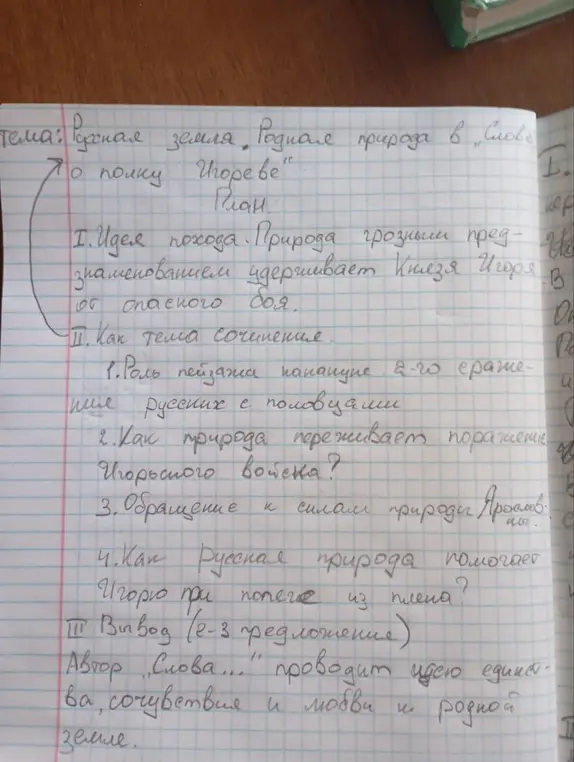 тема: Русская земля. Родная природа в „Слове
о полку Игореве"
План
I. Идея похода. Природа грозным пред-
знаменованием удерживает Князя Игоря
от опасного боя.
II. Как тема сочинения.
1. Роль пейзажа накануне 2-го сраже-
ния русских с половцами
2. Как природа переживает поражение
Игорьского войска?
3. Обращение к силам природы Ярослав-
ны.
4. Как Русская природа помогает
Игорю при побеге из плена?
III Вывод (2-3 предложение)
Автор „Слова..." проводит идею единст-
ва, сочувствия и любви к родной
земле.
I.
В